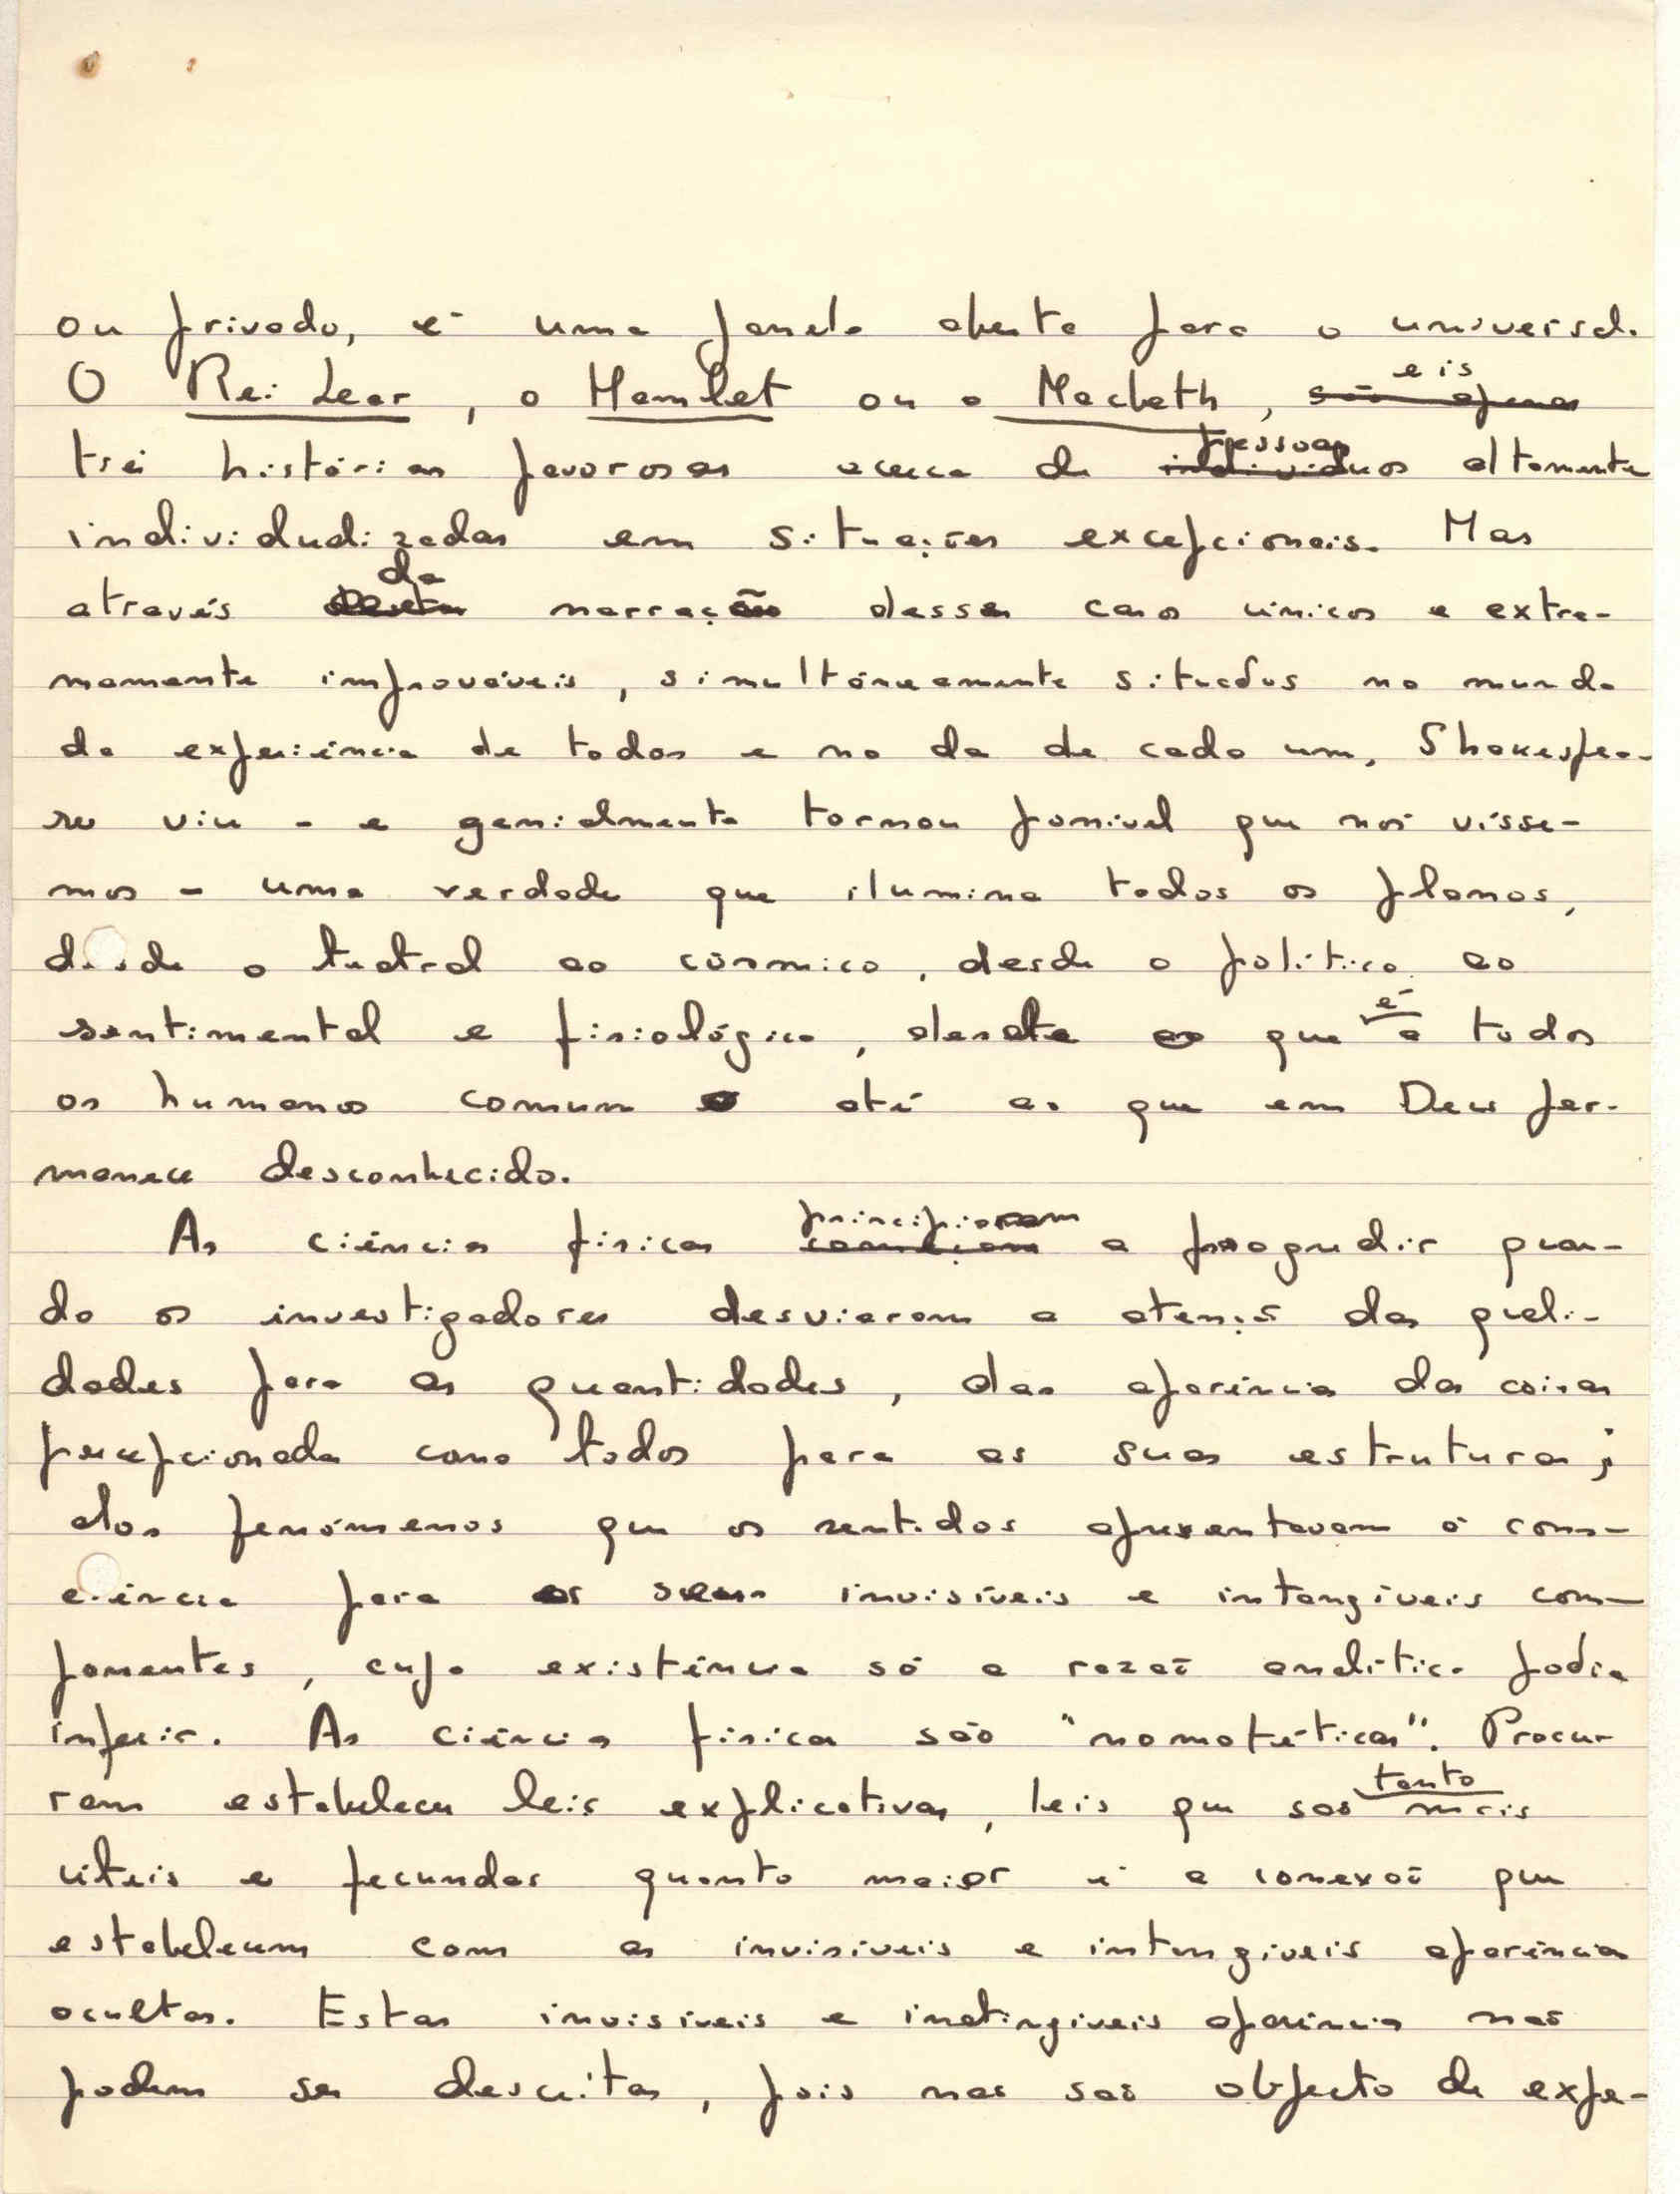 ou privado, é uma janela aberta para o universal.
O Rei Lear, o Hamlet ou o Macbeth, ~~são apenas~~ eis
três histórias pavorosas acerca de ~~indivíduos~~ pessoas altamente
individualizadas em situações excepcionais. Mas
através ~~desta~~ da narração desses casos únicos e extre-
mamente improváveis, simultâneamente situados no mundo
da experiência de todos e no da de cada um, Shakespea-
re viu - e genialmente tornou possível que nós vísse-
mos - uma verdade que ilumina todos os planos,
desde o teatral ao cósmico, desde o político ao
sentimental e fisiológico, desde o que é a todos
os humanos comum até ao que em Deus per-
manece desconhecido.
As ciências físicas ~~começam~~ principiaram a progredir quan-
do os investigadores desviaram a atenção das quali-
dades para as quantidades, das aparências das coisas
percepcionadas como todos para as suas estruturas;
dos fenómenos que os sentidos apresentavam à cons-
ciência para os seus invisíveis e intangíveis com-
ponentes, cuja existência só a razão analítica podia
inferir. As ciências físicas são "nomotéticas". Procu-
ram estabelecer leis explicativas, leis que são tanto mais
úteis e fecundas quanto maior é a conexão que
estabelecem com as invisíveis e intangíveis aparências
ocultas. Estas invisíveis e inatingíveis aparências não
podem ser descritas, pois não são objecto de expe-